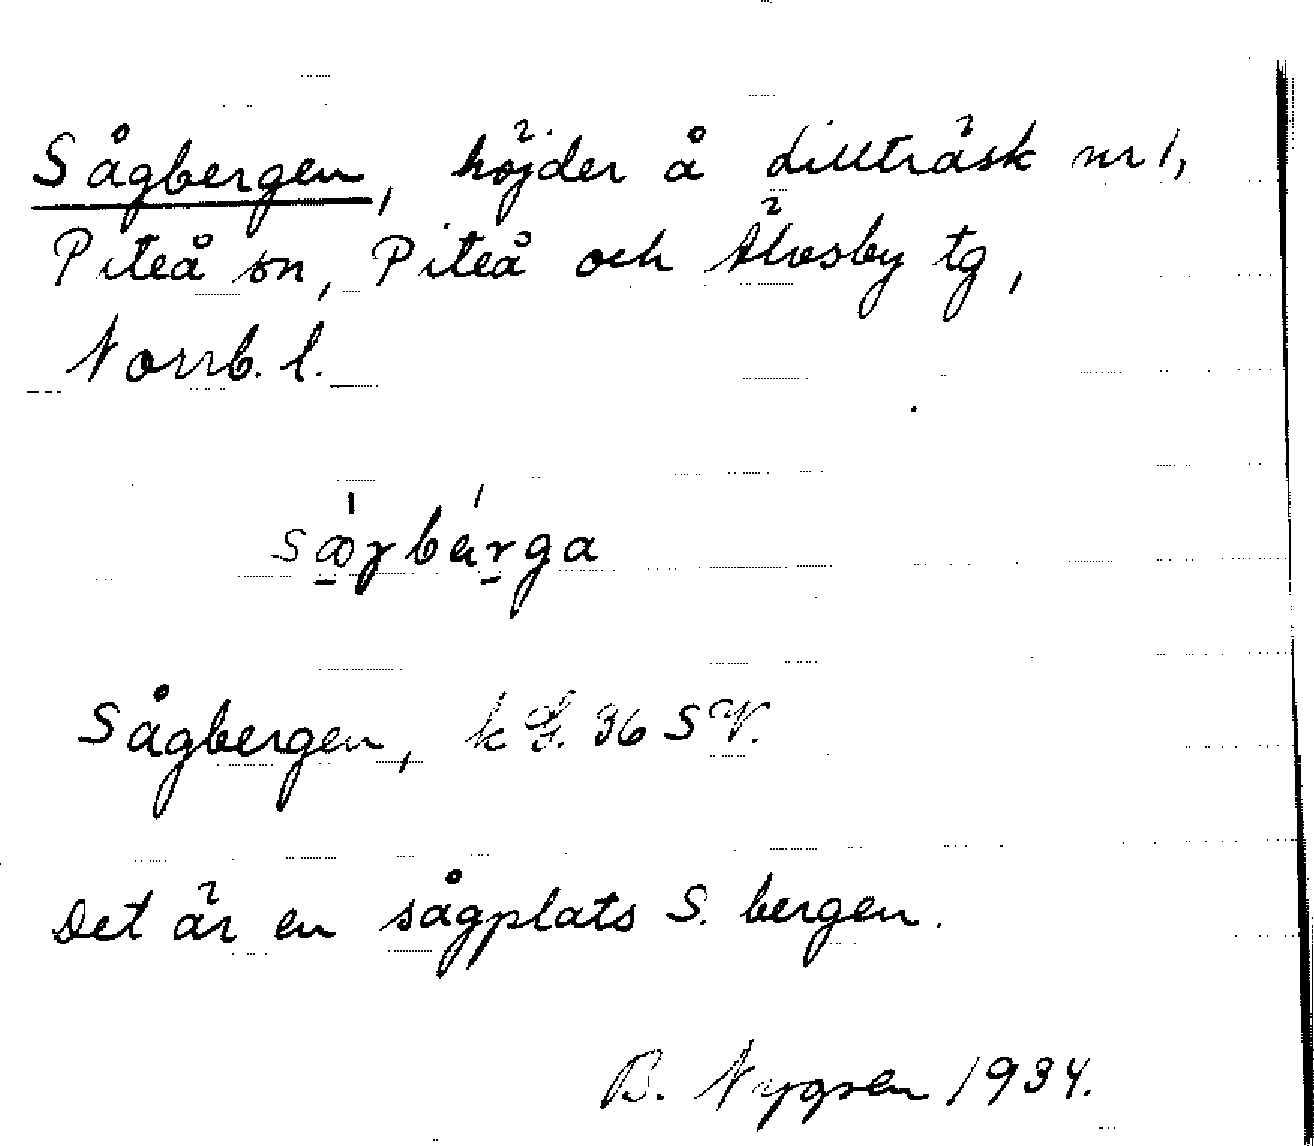 Sågbergen, höjder å Lillträsk nr 1,
Piteå sn, Piteå och Älvsby tg,
Norrb. l.
Sågbergen, k G. 36 SV.
Det är en sågplats S. bergen.
B. Nygren 1934.